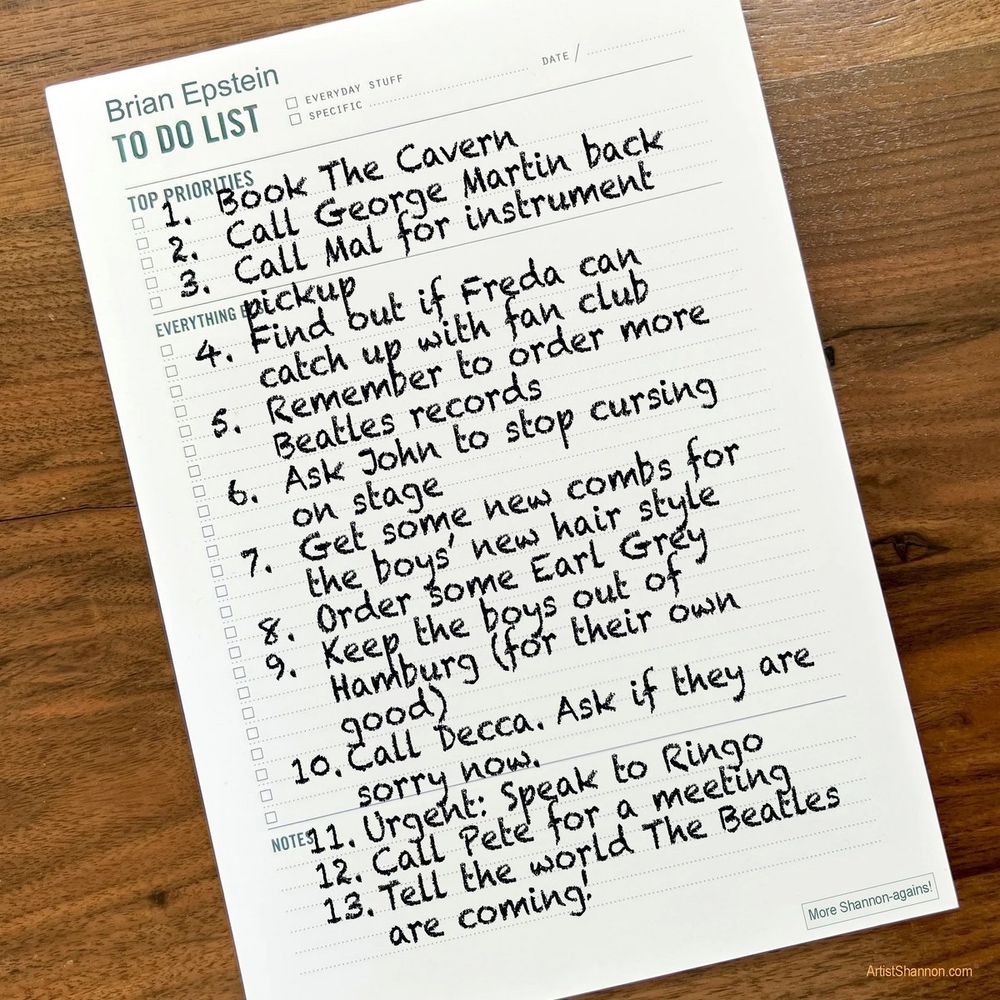 Brian Epstein
TO DO LIST
EVERYDAY STUFF
SPECIFIC
DATE /
TOP PRIORITIES
1. Book The Cavern
2. Call George Martin back
3. Call Mal for instrument
pickup
EVERYTHING
4. Find out if Freda can
catch up with fan club
5. Remember to order more
Beatles records
6. Ask John to stop cursing
on stage
7. Get some new combs for
the boys' new hair style
8. Order some Earl Grey
9. Keep the boys out of
Hamburg (for their own
good)
10. Call Decca. Ask if they are
sorry now.
NOTES
11. Urgent: Speak to Ringo
12. Call Pete for a meeting
13. Tell the world The Beatles
are coming!
More Shannon-agains!
ArtistShannon.com